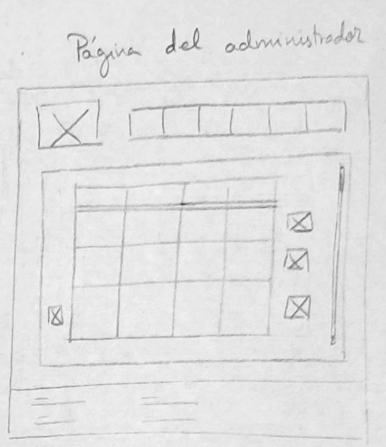 Página del administrador